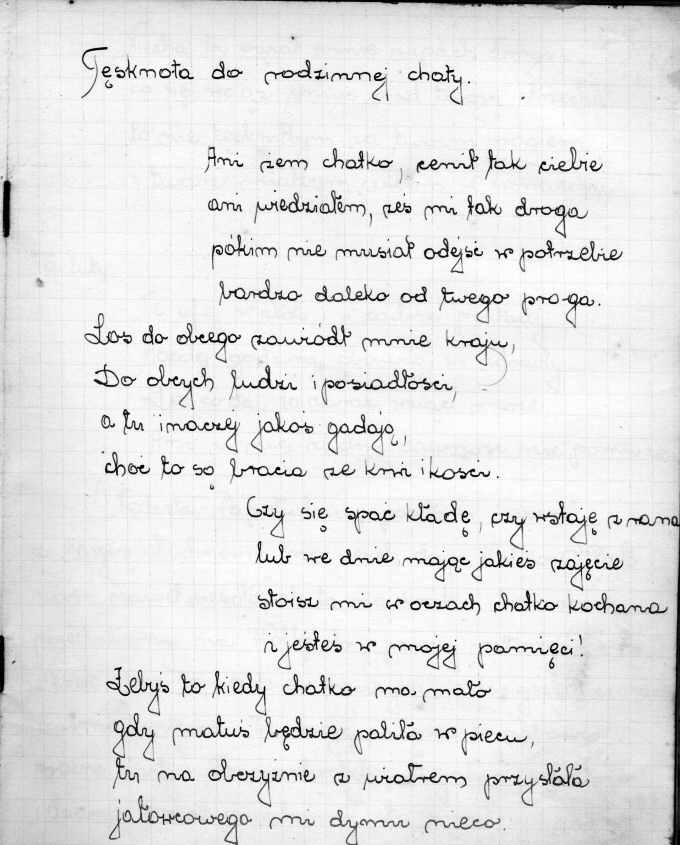 Tęsknota do rodzinnej chaty.
Ani żem chatko, cenił tak ciebie
ani wiedziałem, żeś mi tak droga
pókim nie musiał odejść w potrzebie
bardzo daleko od twego pro-ga.
Los do obcego zawiódł mnie kraju,
Do obcych ludzi i posiadłości,
a tu inaczej jakoś gadają,
choć to są bracia ze krwi i kości.
Czy się spać kładę, czy wstaję z rana
lub we dnie mając jakieś zajęcie
stoisz mi w oczach chatko kochana
i jesteś w mojej pamięci!
Żebyś to kiedy chatko ma mało
gdy matuś będzie paliła w piecu,
tu na obczyźnie z wiatrem przysłała
jałowcowego mi dymu nieco.